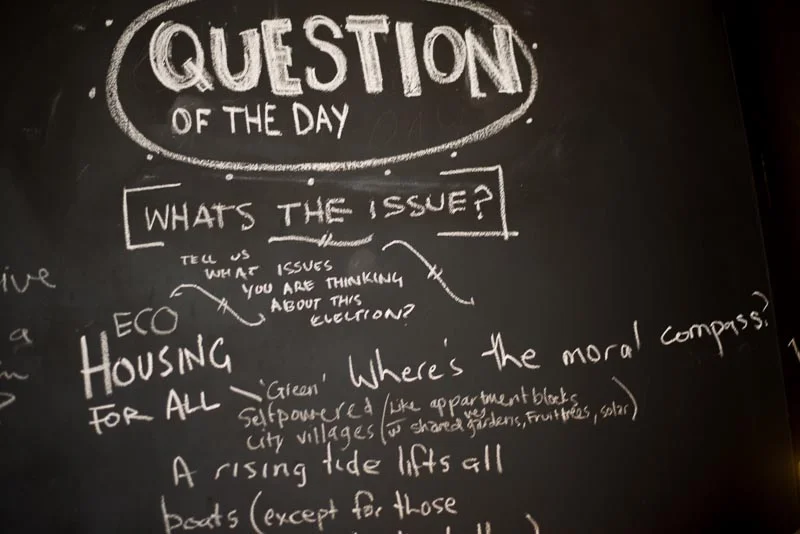 QUESTION
OF THE DAY
WHATS THE ISSUE?
TELL US
WHAT ISSUES
YOU ARE THINKING
ABOUT THIS
ELECTION?
ive
a
ECO
HOUSING
FOR ALL
Where's the moral compass?
'Green'
Selfpowered (Like appartment blocks
city villages w shared veg gardens, Fruit trees, solar)
A rising tide lifts all
boats (except for those